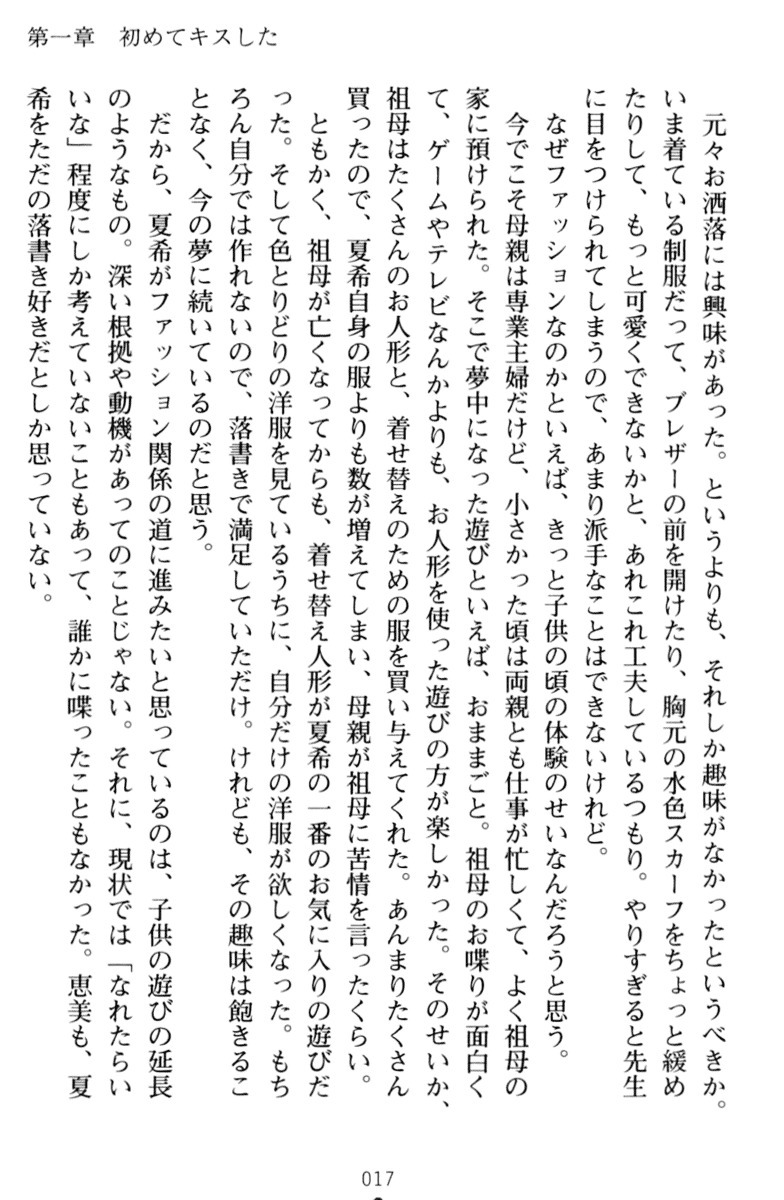 第一章　初めてキスした
　元々お洒落には興味があった。というよりも、それしか趣味がなかったというべきか。
いま着ている制服だって、ブレザーの前を開けたり、胸元の水色スカーフをちょっと緩め
たりして、もっと可愛くできないかと、あれこれ工夫しているつもり。やりすぎると先生
に目をつけられてしまうので、あまり派手なことはできないけれど。
　なぜファッションなのかといえば、きっと子供の頃の体験のせいなんだろうと思う。
　今でこそ母親は専業主婦だけど、小さかった頃は両親とも仕事が忙しくて、よく祖母の
家に預けられた。そこで夢中になった遊びといえば、おままごと。祖母のお喋りが面白く
て、ゲームやテレビなんかよりも、お人形を使った遊びの方が楽しかった。そのせいか、
祖母はたくさんのお人形と、着せ替えのための服を買い与えてくれた。あんまりたくさん
買ったので、夏希自身の服よりも数が増えてしまい、母親が祖母に苦情を言ったくらい。
　ともかく、祖母が亡くなってからも、着せ替え人形が夏希の一番のお気に入りの遊びだ
った。そして色とりどりの洋服を見ているうちに、自分だけの洋服が欲しくなった。もち
ろん自分では作れないので、落書きで満足していただけ。けれども、その趣味は飽きるこ
となく、今の夢に続いているのだと思う。
　だから、夏希がファッション関係の道に進みたいと思っているのは、子供の遊びの延長
のようなもの。深い根拠や動機があってのことじゃない。それに、現状では「なれたらい
いな」程度にしか考えていないこともあって、誰かに喋ったこともなかった。恵美も、夏
希をただの落書き好きだとしか思っていない。
017